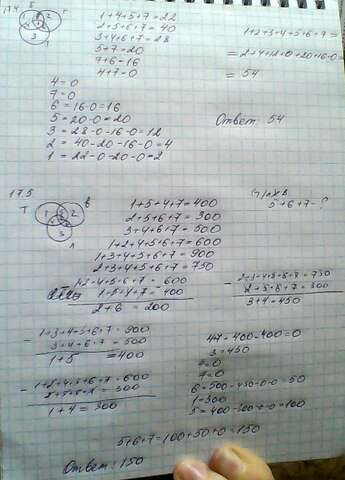 17.4
1+4+5+7=22
2+5+6+7=40
3+4+6+7=28
5+7=20
7+6=16
4+7=0
1+2+3+4+5+6+7=
=2+4+12+0+20+16+0=
=54
4=0
7=0
6=16-0=16
5=20-0=20
3=28-0-16-0=12
2=40-20-16-0=4
1=22-0-20-0=2
Ответ: 54
17.5
Т
В
Л
1 2 3
1+5+4+7=400
2+5+6+7=300
3+4+6+7=500
1+2+4+5+6+7=600
1+3+4+5+6+7=900
2+3+4+5+6+7=750
5+6+7-?
1+2+4+5+6+7=600
1+5+4+7=400
2+6=200
2+3+4+5+6+7=750
2+5+6+7=300
3+4=450
1+3+4+5+6+7=900
3+4+6+7=500
1+5=400
1+2+4+5+6+7=600
2+5+6+7=300
1+4=300
47-400-400=0
3=450
7=0
6=500-450-0-0=50
1=300
5=400-300-0-0=100
5+6+7=100+50+0=150
Ответ: 150